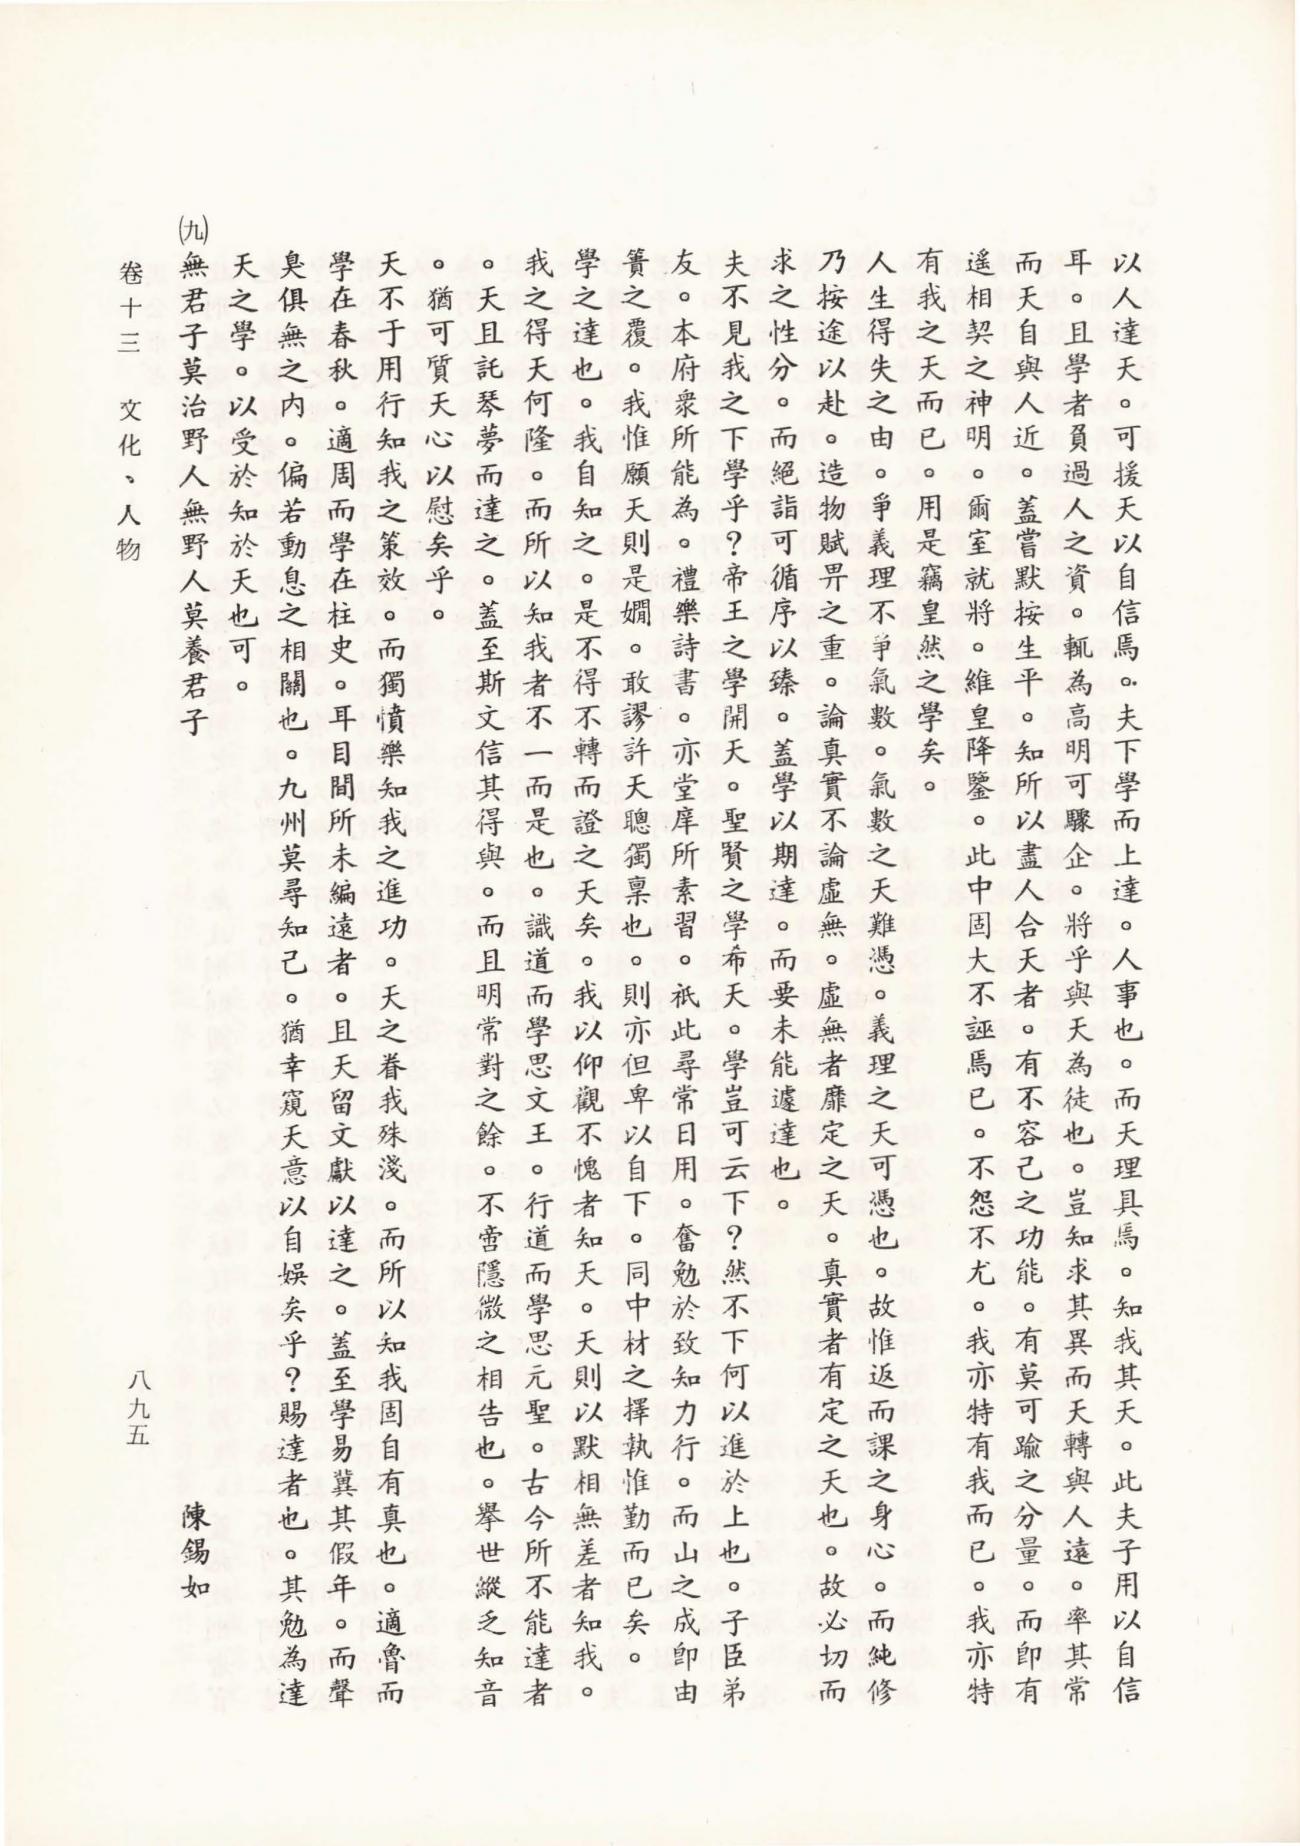 以人達天。可援天以自信焉。夫下學而上達。人事也。而天理具焉。知我其天。此夫子用以自信
耳。且學者負過人之資。輒為高明可驟企。將乎與天為徒也。豈知求其異而天轉與人遠。率其常
而天自與人近。蓋嘗默按生平。知所以盡人合天者。有不容己之功能。有莫可踰之分量。而即有
遥相契之神明。爾室就將。維皇降鑒。此中固大不誣焉已。不怨不尤。我亦特有我而已。我亦特
有我之天而已。用是竊皇然之學矣。
人生得失之由。爭義理不爭氣數。氣數之天難憑。義理之天可憑也。故惟返而課之身心。而純修
乃按途以赴。造物賦畀之重。論真實不論虛無。虛無者靡定之天。真實者有定之天也。故必切而
求之性分。而絕詣可循序以臻。蓋學以期達。而要未能遽達也。
夫不見我之下學乎？帝王之學開天。聖賢之學希天。學豈可云下？然不下何以進於上也。子臣弟
友。本府衆所能為。禮樂詩書。亦堂庠所素習。祇此尋常日用。奮勉於致知力行。而山之成即由
簣之覆。我惟願天則是嫺。敢謬許天聰獨稟也。則亦但卑以自下。同中材之擇執惟勤而已矣。
學之達也。我自知之。是不得不轉而證之天矣。我以仰觀不愧者知天。天則以默相無差者知我。
我之得天何隆。而所以知我者不一而是也。識道而學思文王。行道而學思元聖。古今所不能達者
。天且託琴夢而達之。蓋至斯文信其得與。而且明常對之餘。不啻隱微之相告也。舉世縱乏知音
。猶可質天心以慰矣乎。
天不于用行知我之策效。而獨憤樂知我之進功。天之眷我殊淺。而所以知我固自有真也。適魯而
學在春秋。適周而學在柱史。耳目間所未編遠者。且天留文獻以達之。蓋至學易冀其假年。而聲
臭俱無之內。偏若動息之相關也。九州莫尋知己。猶幸窺天意以自娛矣乎？賜達者也。其勉為達
天之學。以受於知於天也可。
㈨無君子莫治野人無野人莫養君子 陳錫如
卷十三 文化、人物 八九五